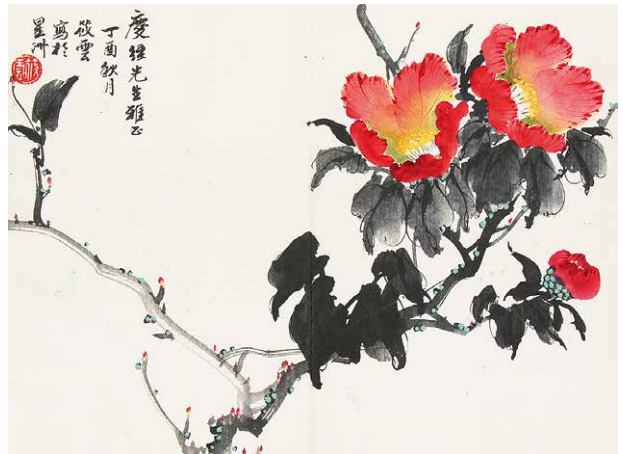 慶繼先生雅正
丁酉秋月
筱雲
寫於
星洲